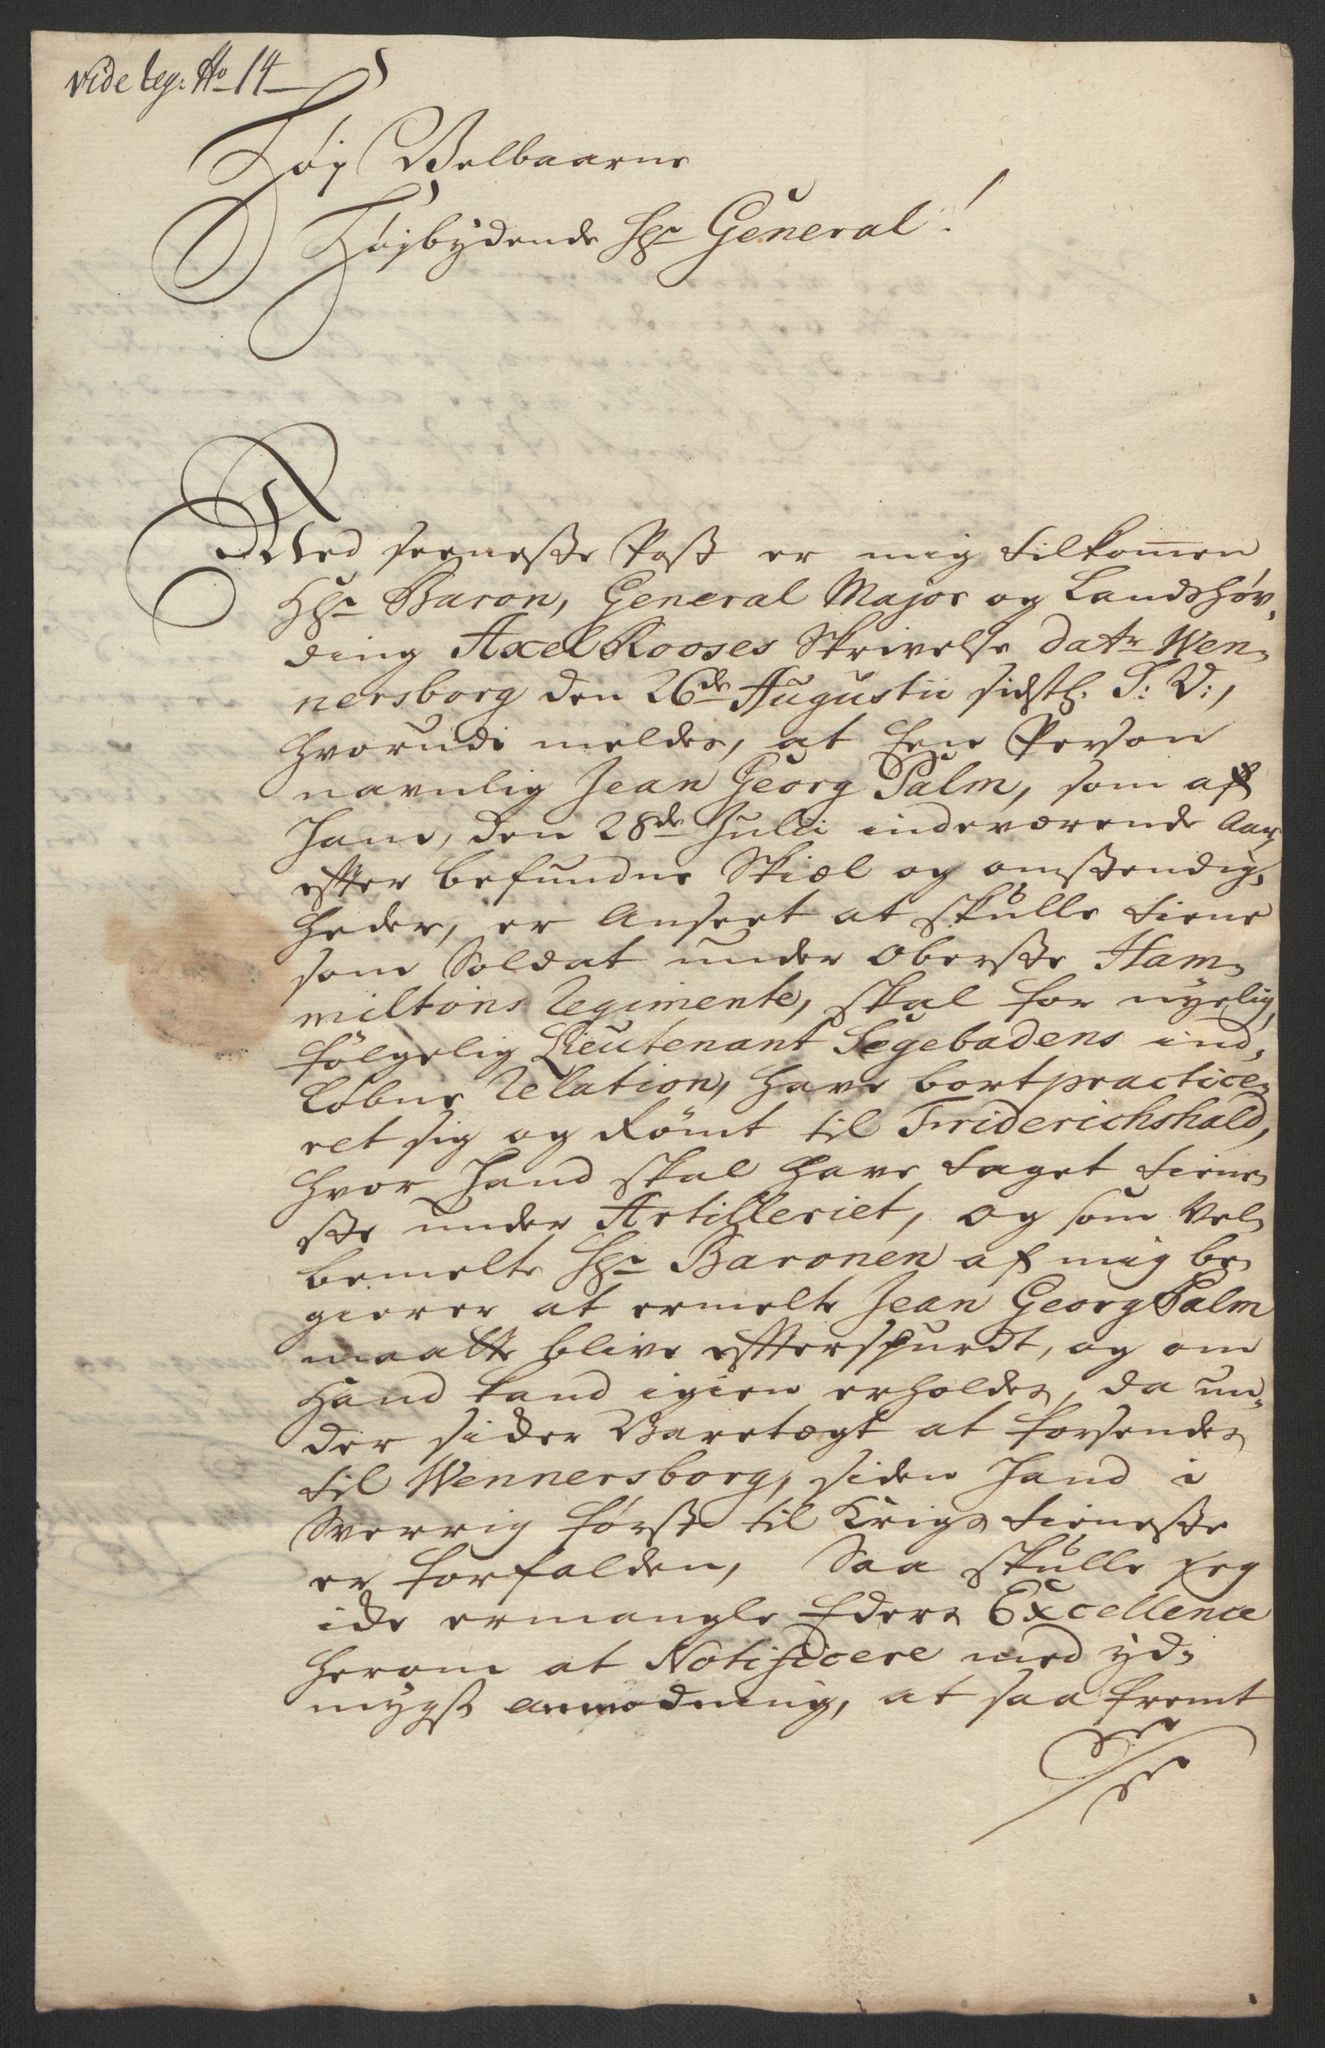 vide leg: No 14
Høy Velbaarne
Høybydende Hr General!
Med seeneste Post er mig tilkommen
Hr Baron, General Major og Landshøv,
ding Axel Rooses Skrivelse datr Wen,
nersborg den 26de Augustii sidstl. S: V:,
hvorudi meldes, at Een Person
navnlig Jean Georg Palm, som af
ham, den 28de Julii indeværende Aar
efter befundne Skiæl og omstendig,
heder, er Anseet at skulle tiene
som Soldat under Oberste Ham,
miltons Regimente, skal for nyelig,
følgelig Lieutenant Segebadens ind,
løbne Relation, have bortpractice,
ret sig og Rømt til Friderichshald,
hvor hand skal have taget tiene,
ste under Artilleriet, og som Vel,
bemelte Hr Baronen af mig be,
gierer at ermelte Jean Georg Palm
maatte blive effterspurdt, og om
hand kand igien erholdes, da un,
der sider Varetægt at forsendes
til Wennersborg, siden hand i
Sverrig først til Krigs tieneste
er forfalden, Saa skulle jeg
icke ermangle Eders Excellence
herom at Notificere med yd,
mygst anmodning, at saa fremt